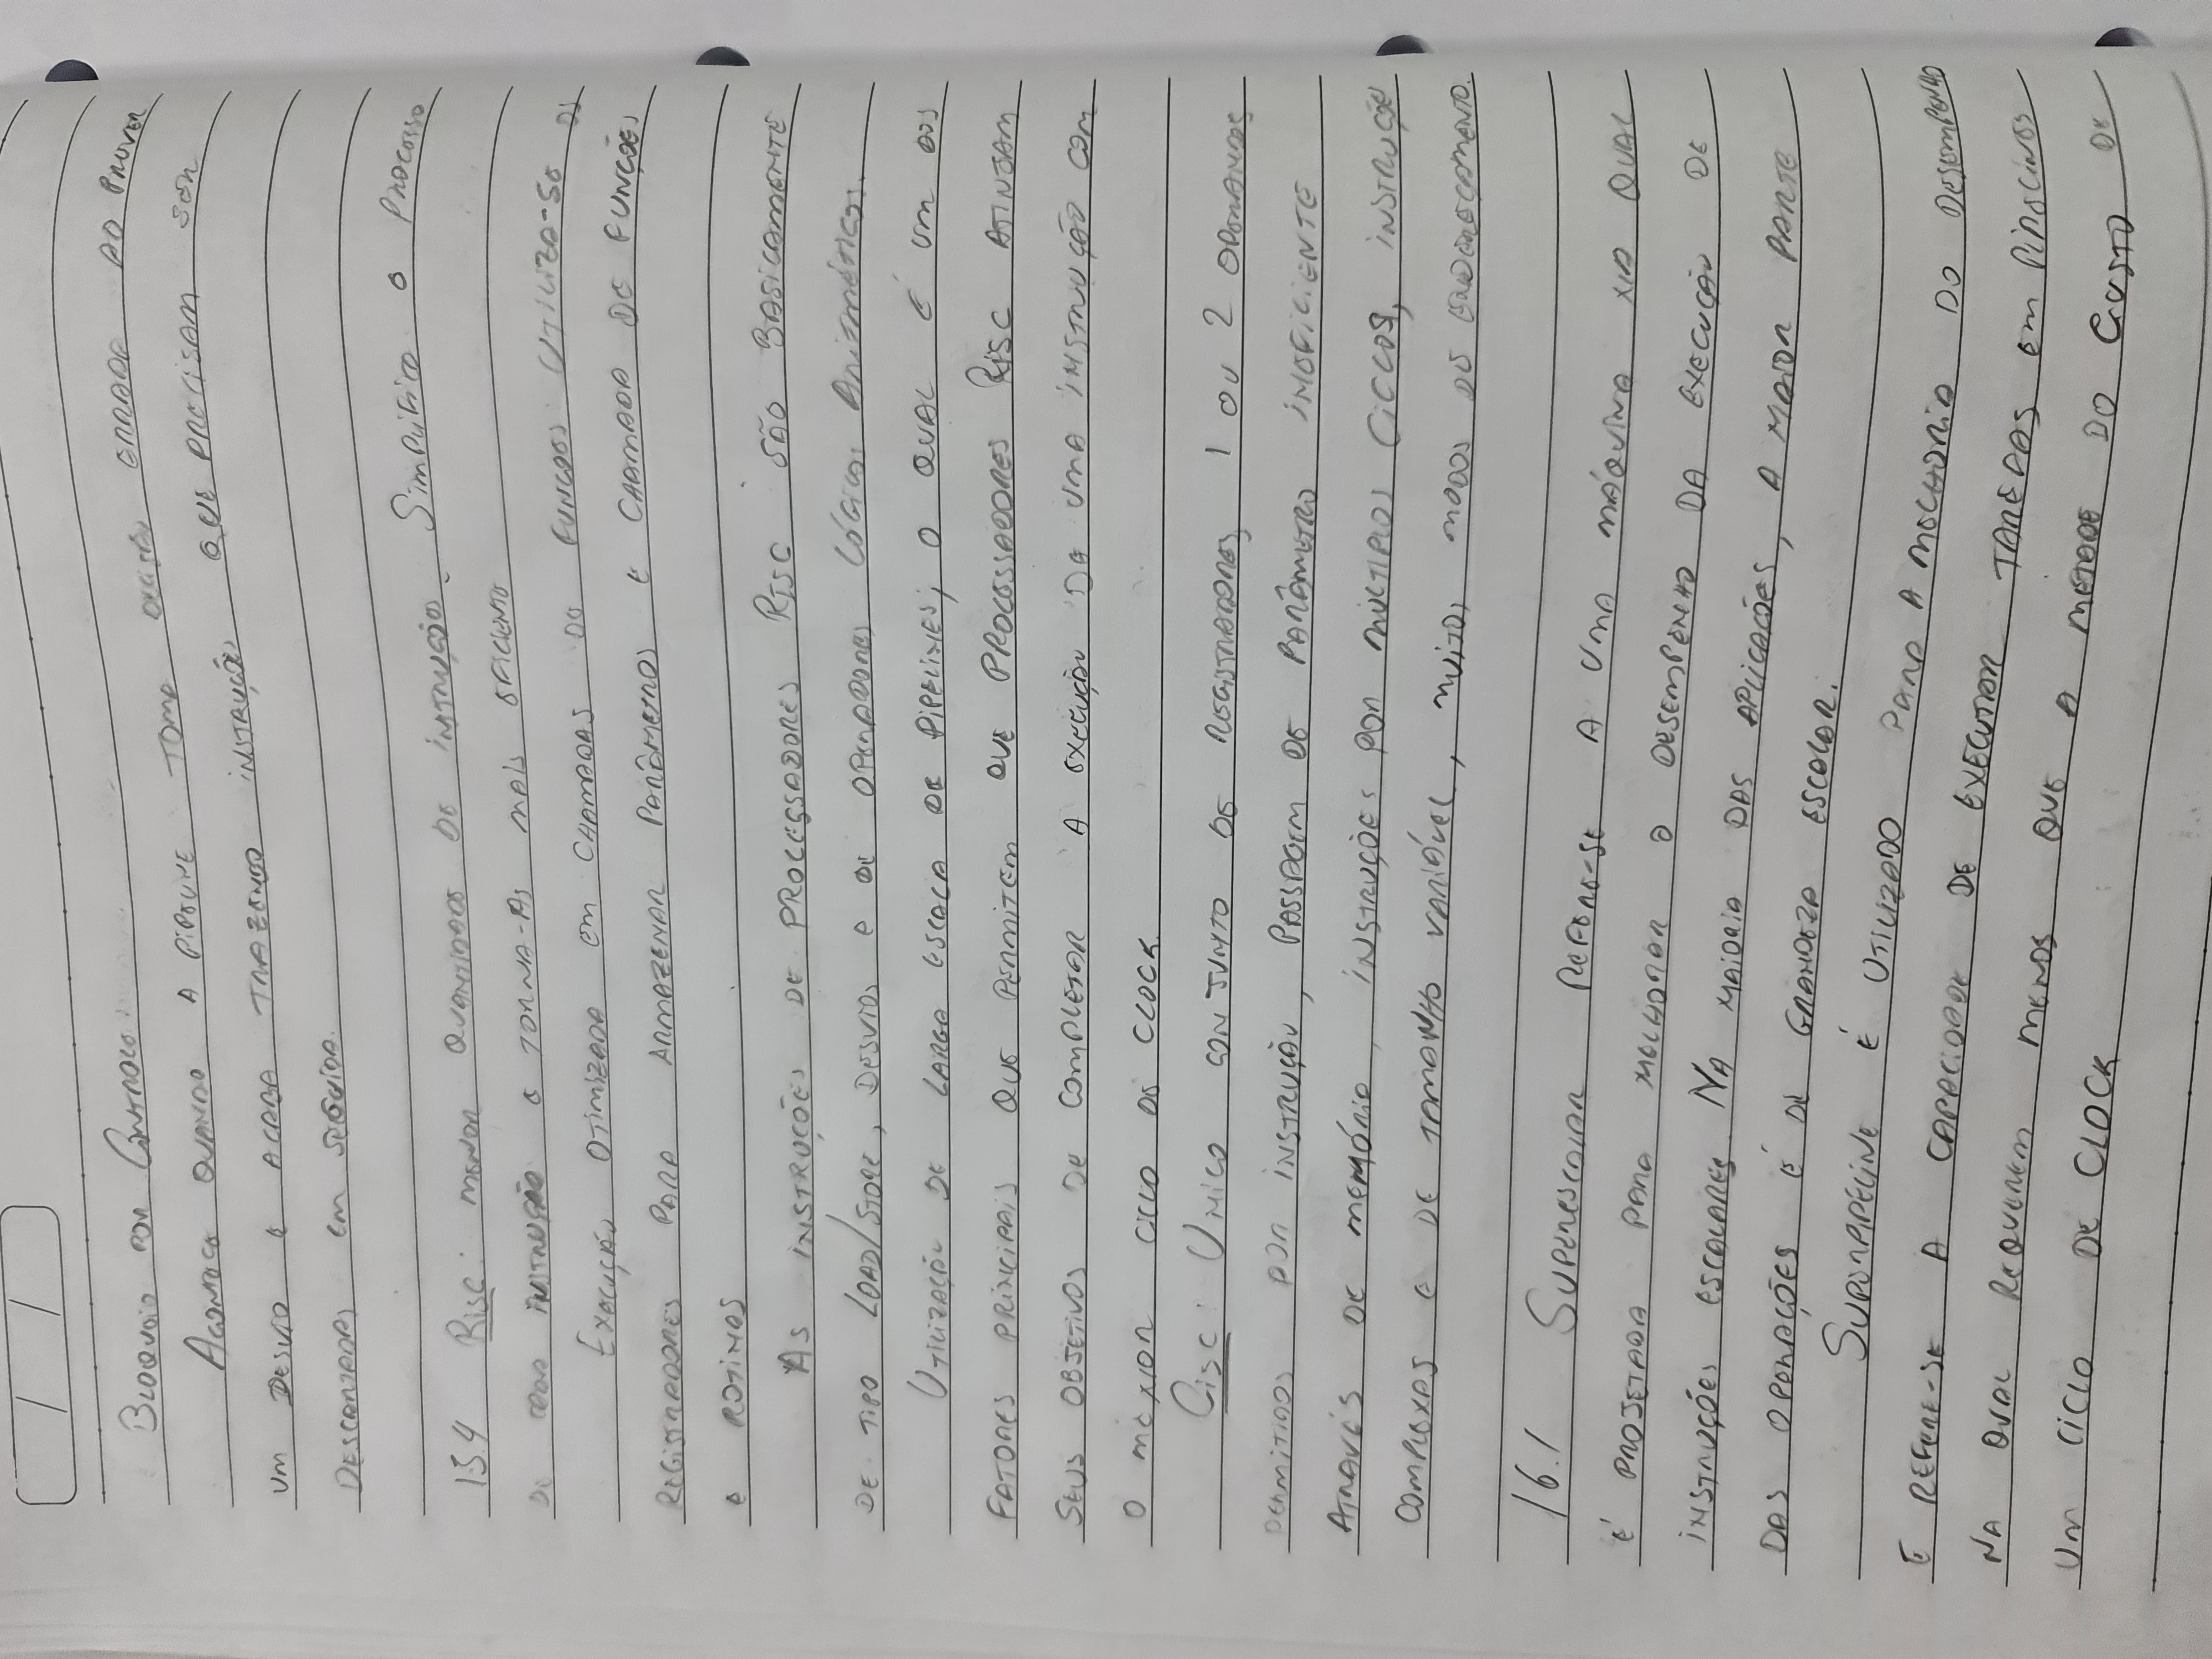 Bloqueio por Controle:
Acontece quando a pipeline toma decisão errada ao prover
um desvio e acaba trazendo instruções que precisam ser
descartadas em seguida.
15.4 Risc: menor quantidade de instruções. Simplifica o processo
de cada instrução e torna-as mais eficiente
Execução otimizada em chamadas de funcoes: Utiliza-se os
registradores para armazenar parâmetros e chamada de funções
e rotinas
As instruções de processadores Risc são basicamente
de tipo Load/Store, desvios e de operadores lógicos aritméticos.
Utilização de larga escala de pipelines, o qual é um dos
fatores principais que permitem que processadores Risc atinjam
seus objetivos de completar a execução de uma instrução com
o menor ciclo de clock.
Cisc: Unico conjunto de registradores, 1 ou 2 operandos
permitidos por instrução, passagem de parâmetro ineficiente
através de memória, instruções por múltiplos ciclos, instruções
complexas e de tamanho variável, muitos modos de endereçamento.
16.1 Superescalar refere-se a uma máquina na qual
é projetada para melhorar o desempenho da execução de
instruções escalares. Na maioria das aplicações, a maior parte
das operações é de grandeza escalar.
Superpipeline é utilizado para a melhoria do desempenho
e refere-se a capacidade de executar tarefas em pipelines
na qual requerem menos que a metade do custo de
um ciclo de clock